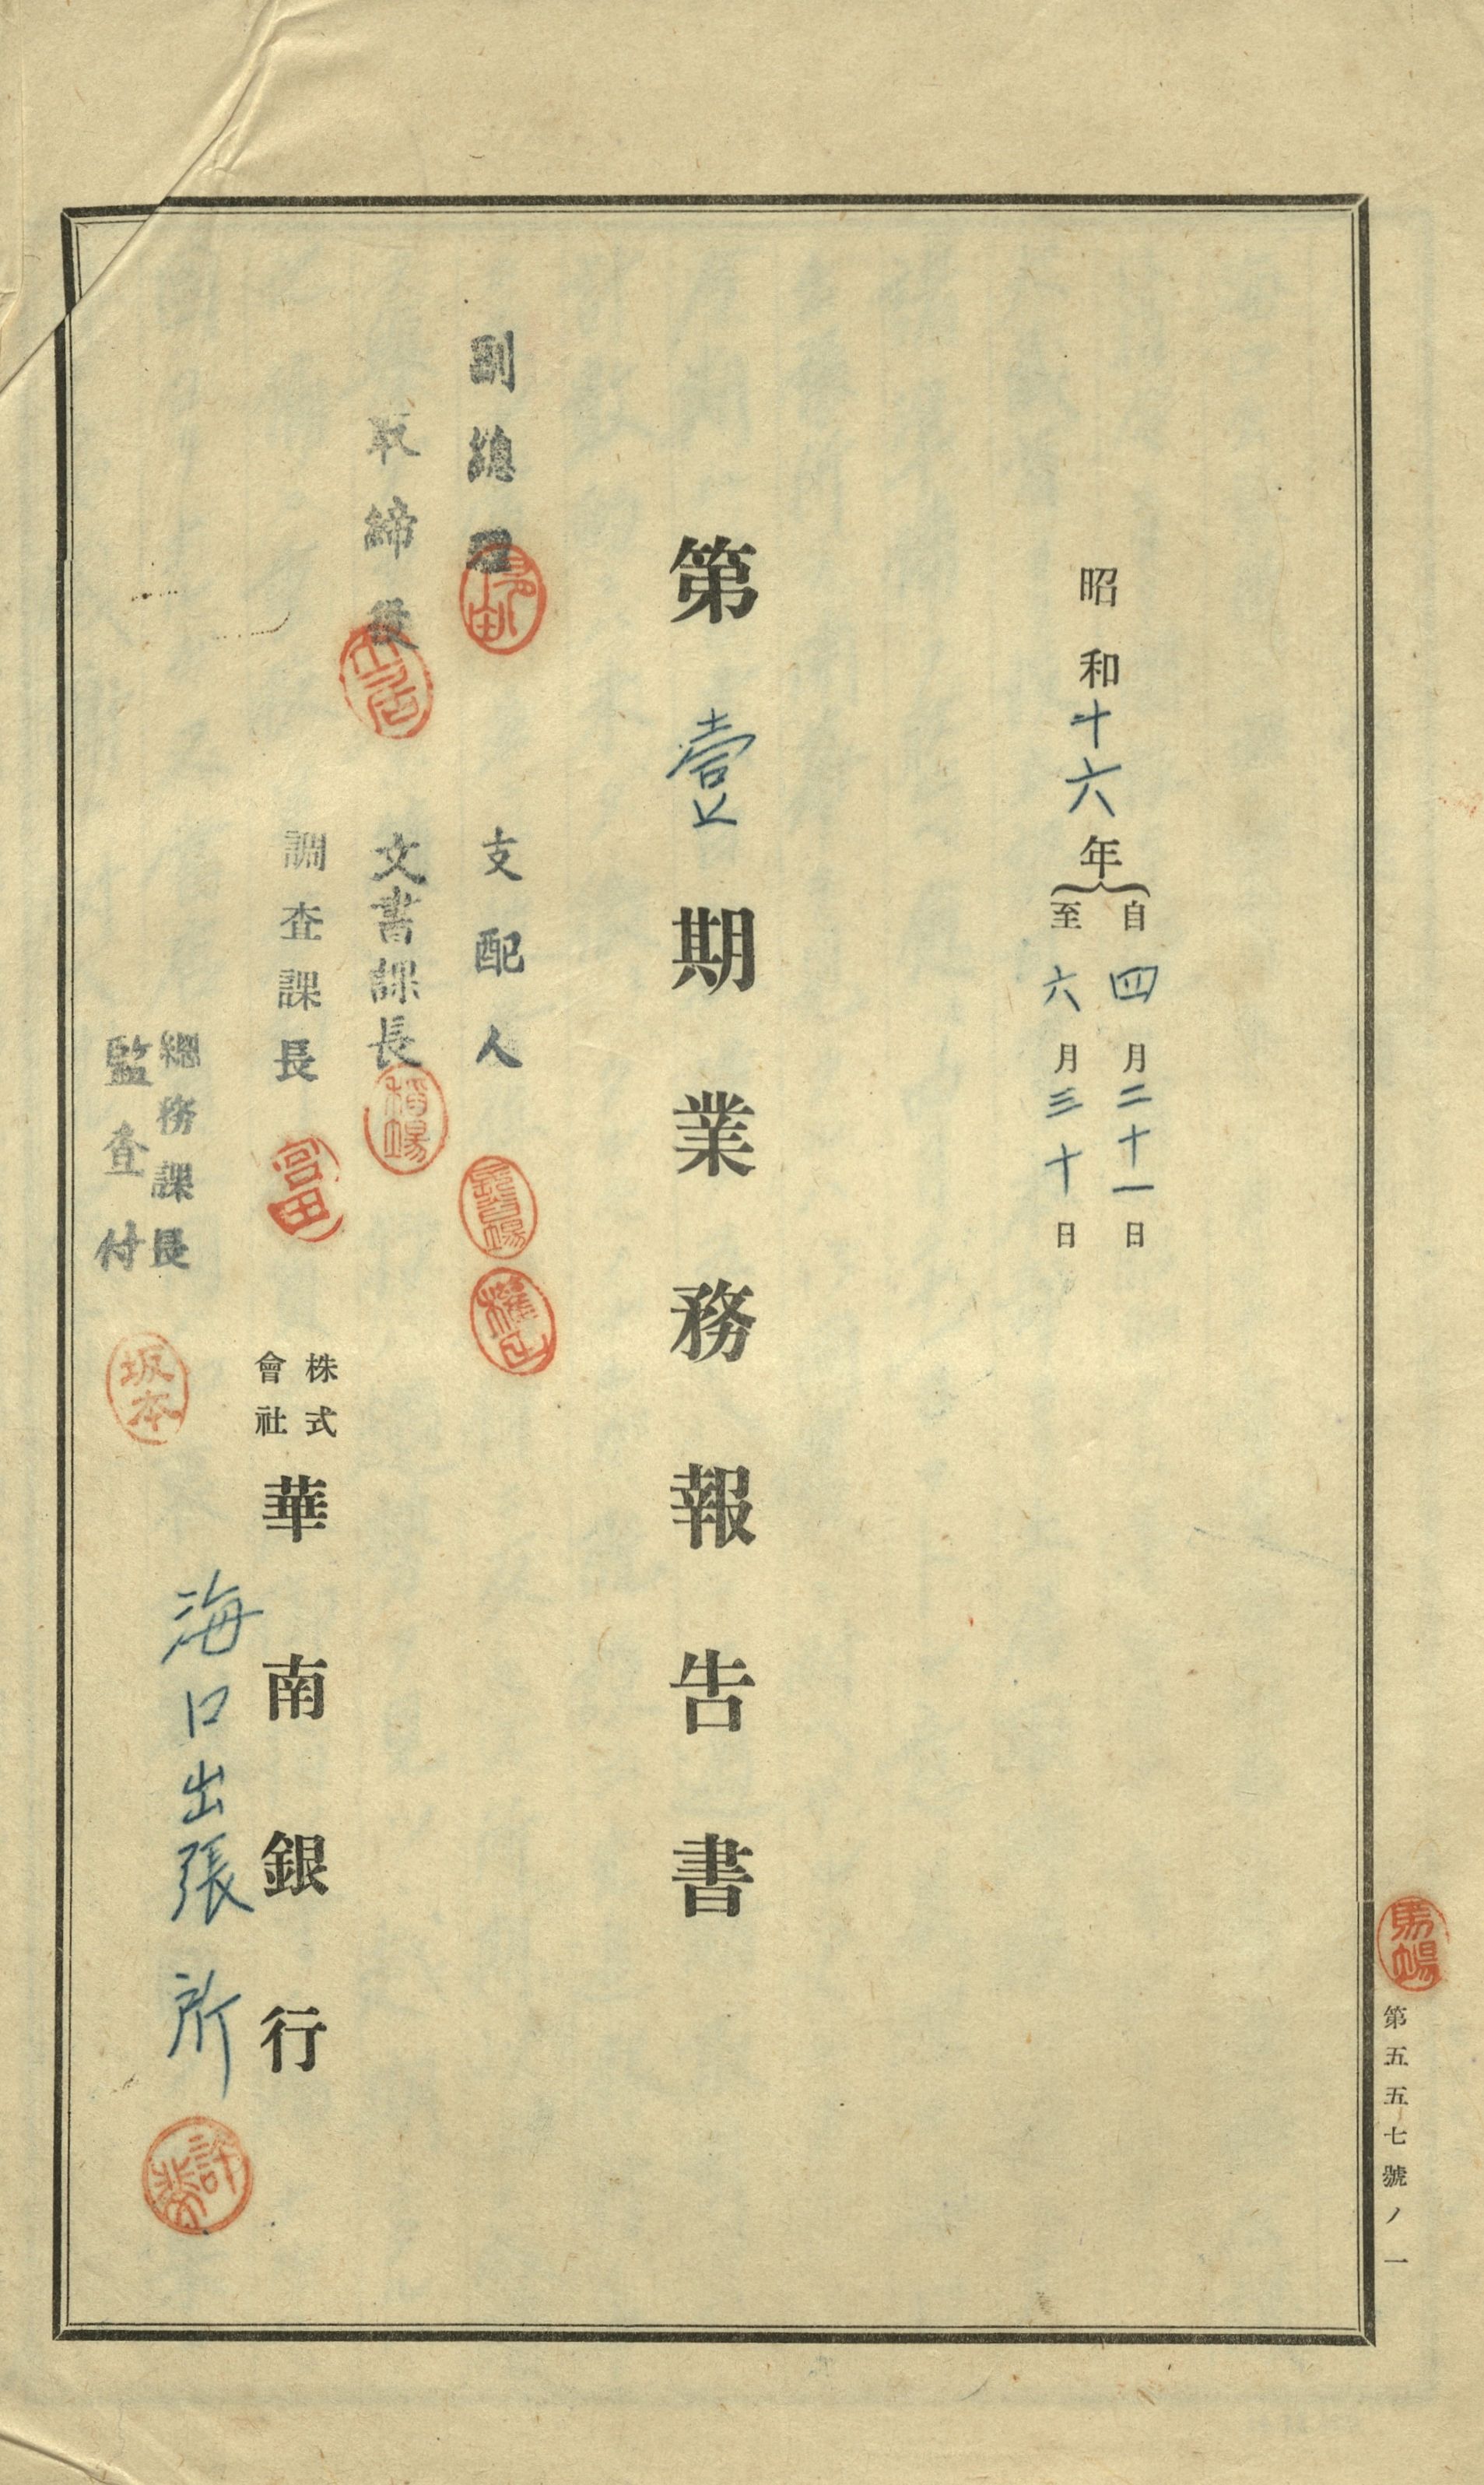 昭和十六年
自四月二十一日
至六月三十日
第壹期業務報告書
副總理
取締役
支配人
文書課長
稻場
調査課長
富田
總務課長
監査付
坂本
株式會社華南銀行
海口出張所
馬場
第五五七號ノ一